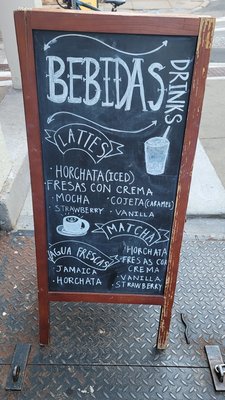 BEBIDAS
DRINKS
LATTES
· HORCHATA (ICED)
FRESAS CON CREMA
· MOCHA
· STRAWBERRY
· COTETA (CARAMEL)
· VANILLA
MATCHA
· HORCHATA
FRESAS CON
CREMA
· VANILLA
· STRAWBERRY
AGUA FRESCAS
· JAMAICA
· HORCHATA